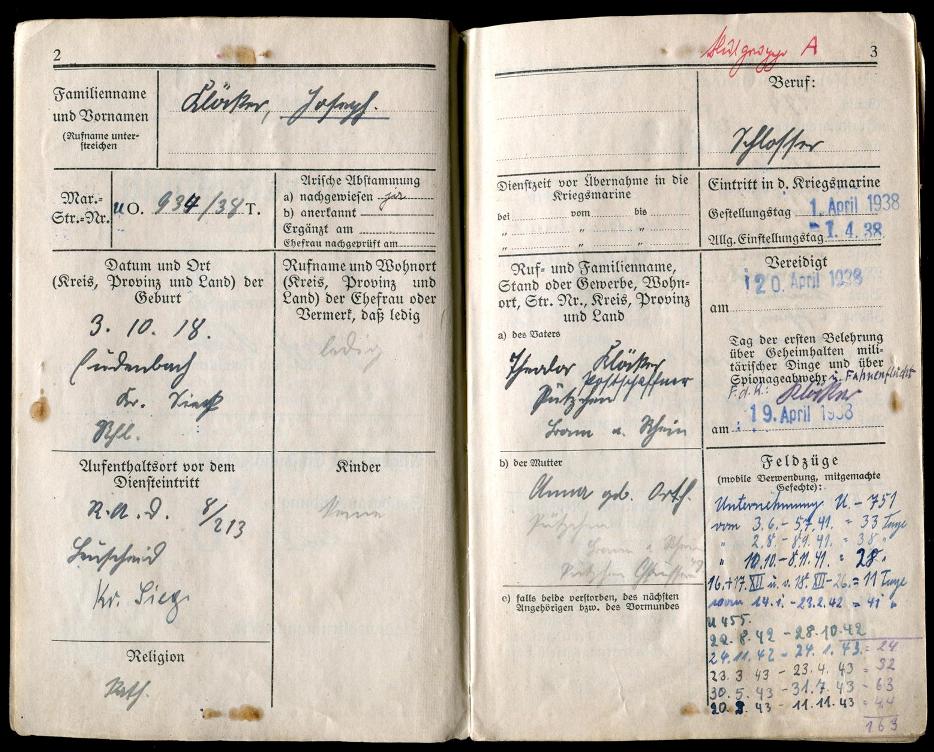 2
Familienname
und Vornamen
(Rufname unter-
streichen
Klöcker, Joseph.
Mar.-
Str.-Nr.
UO. 934/38 T.
Arische Abstammung
a) nachgewiesen ja
b) anerkannt
Ergänzt am
Ehefrau nachgeprüft am
Datum und Ort
(Kreis, Provinz und Land) der
Geburt
3. 10. 18.
Eudenbach
Kr. Sieg
Rhl.
Rufname und Wohnort
(Kreis, Provinz und
Land) der Ehefrau oder
Vermerk, daß ledig
ledig
Aufenthaltsort vor dem
Diensteintritt
R.A.D. 8/213
Leuscheid
Kr. Sieg
Kinder
keine
Religion
Kath.
Blutgruppe A
3
Beruf:
Schlosser
Dienstzeit vor Übernahme in die
Kriegsmarine
bei vom bis
" " "
" " "
Eintritt in d. Kriegsmarine
Gestellungstag 1. April 1938
Allg. Einstellungstag 1. 4. 38.
Ruf- und Familienname,
Stand oder Gewerbe, Wohn-
ort, Str. Nr., Kreis, Provinz
und Land
a) des Vaters
Theodor Klöcker
Postschaffner
Pützchen
Bonn a. Rhein
Vereidigt
am 20. April 1938
Tag der ersten Belehrung
über Geheimhalten mili-
tärischer Dinge und über
Spionageabwehr u. Fahnenflucht
F.d.R.: Klöcker
am 19. April 1938
b) der Mutter
Anna geb. Orth.
Pützchen
Bonn a Rhein
c) falls beide verstorben, des nächsten
Angehörigen bzw. des Vormundes
Feldzüge
(mobile Verwendung, mitgemachte
Gefechte):
Unternehmung U.-751
vom 3.6.-5.7.41. = 33 Tage
" 2.8-8.9.41. = 38 "
" 10.10.-8.11.41. = 28 "
16.+17.XII u. v. 18. XII-26. = 11 Tage
vom 14.1.-23.2.42 = 41 "
U 455.
22.8.42 - 28.10.42
24.11.42 - 24.1.43. = 24
23.3 43 - 23.4.43 = 32
30.5.43 - 31.7.43 - 63
20.9.43 - 11.11.43 = 44
163